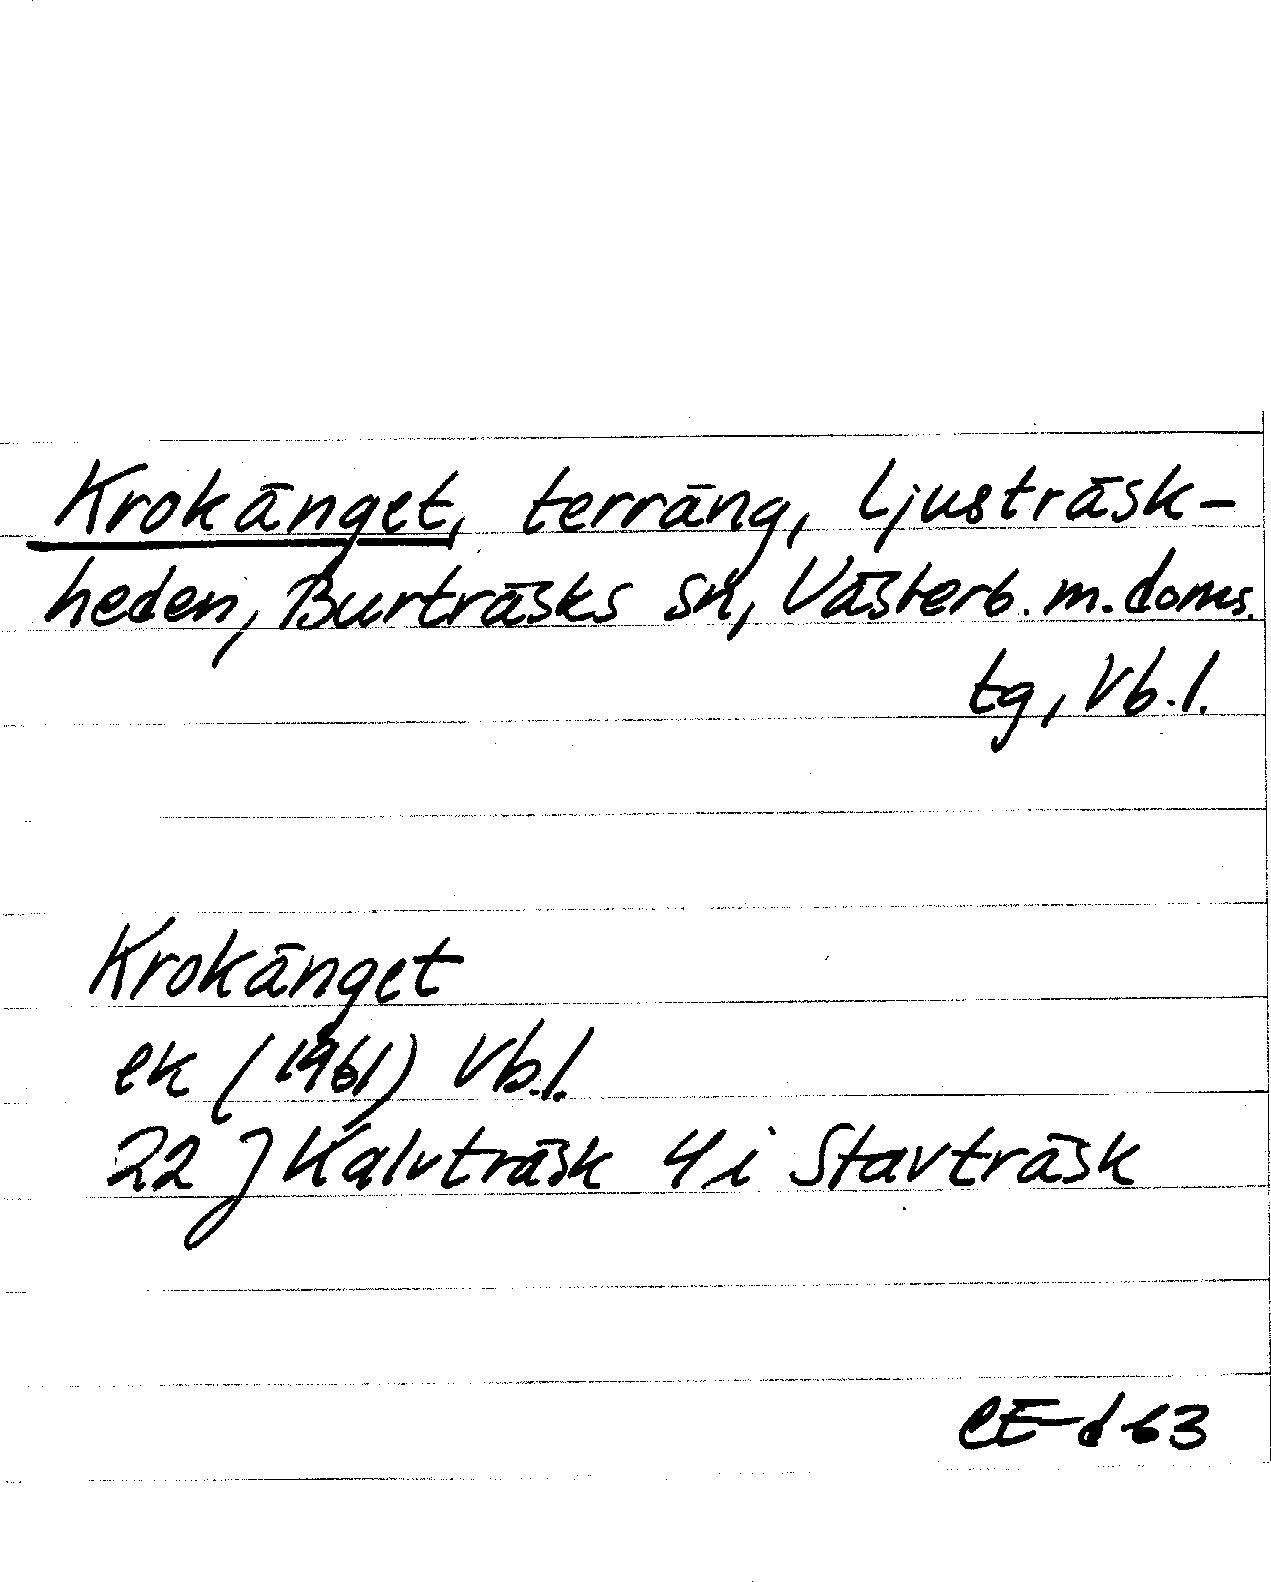 Krokänget, terräng, Ljusträsk-
heden, Burträsks sn, Västerb. m. doms.
tg, Vb.l.
Krokänget
ek (1961) Vb.l.
22 J Kalvträsk 4 i Stavträsk
CE-d 63